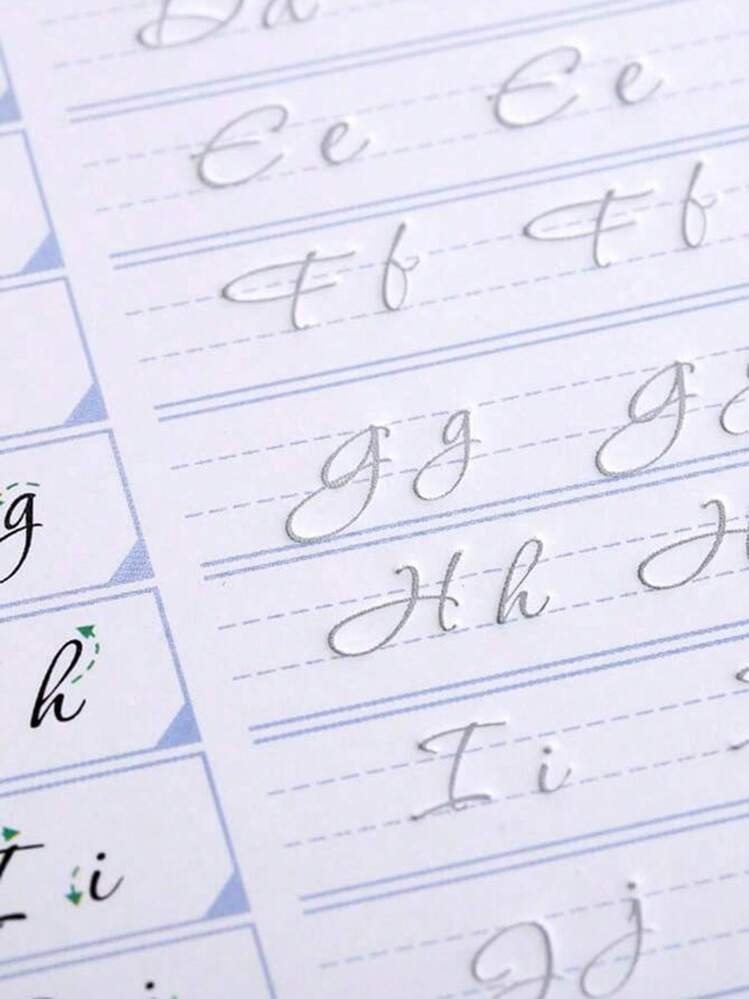 D d
E e E e
F f F f
g G g G g
h H h H
I i I i
J j